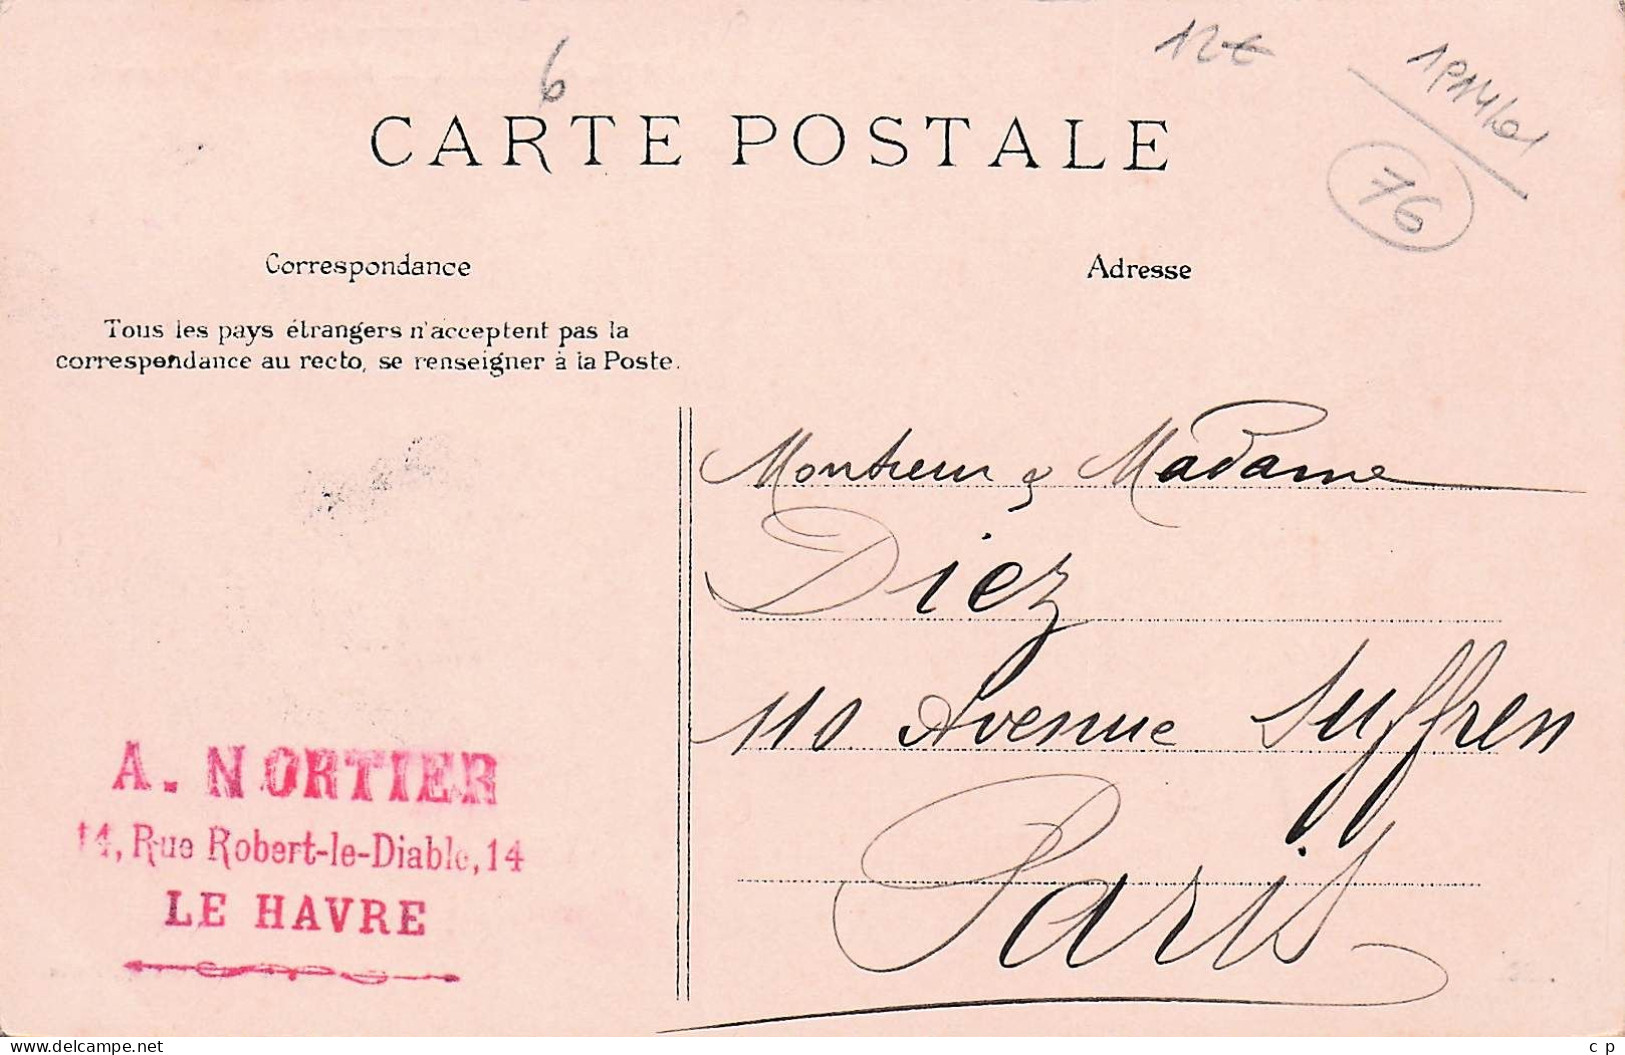 12€
6
CARTE POSTALE
76
Correspondance
Adresse
Tous les pays étrangers n'acceptent pas la
correspondance au recto, se renseigner à la Poste.
Monsieur & Madame
Diez
110 Avenue Suffren
Paris
A. NORTIER
14, Rue Robert-le-Diable, 14
LE HAVRE
www.delcampe.net
c p